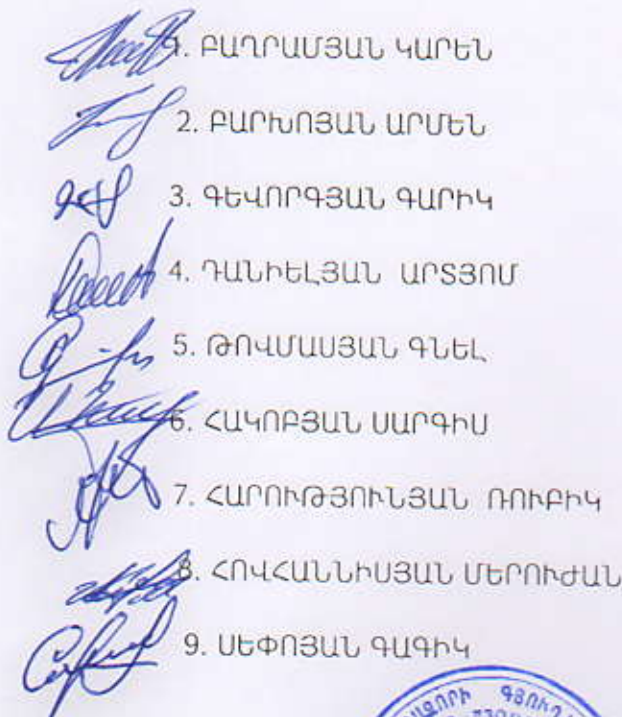 1. ԲԱՂՐԱՄՅԱՆ ԿԱՐԵՆ
2. ԲԱՐԽՈՅԱՆ ԱՐՄԵՆ
3. ԳԵՎՈՐԳՅԱՆ ԳԱՐԻԿ
4. ԴԱՆԻԵԼՅԱՆ ԱՐՏՅՈՄ
5. ԹՈՎՄԱՍՅԱՆ ԳՆԵԼ
6. ՀԱԿՈԲՅԱՆ ՍԱՐԳԻՍ
7. ՀԱՐՈՒԹՅՈՒՆՅԱՆ ՌՈՒԲԻԿ
8. ՀՈՎՀԱՆՆԻՍՅԱՆ ՄԵՐՈՒԺԱՆ
9. ՍԵՓՈՅԱՆ ԳԱԳԻԿ